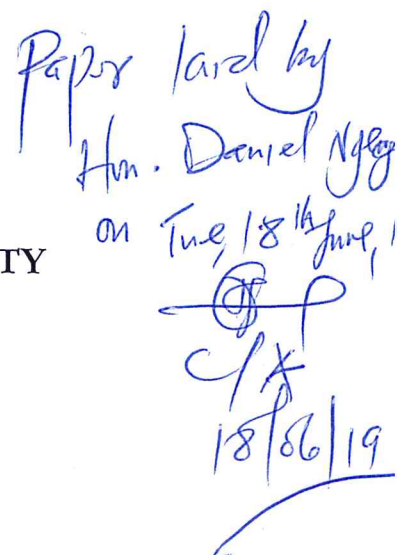 Paper laid by
Hon. Daniel
on Tue, 18th June,
TY
18/06/19